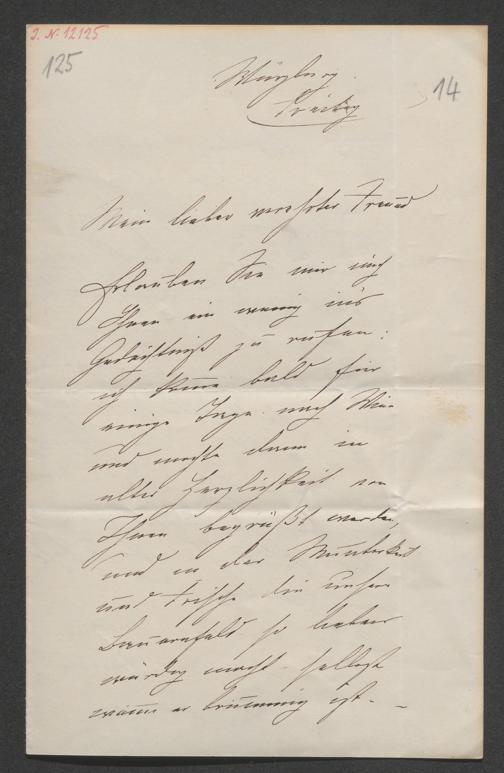 J. N. 12125
125
14
Würzburg.
Freitag
Mein lieber verehrter Freund
Erlauben Sie mir mich
Ihnen ein wenig in's
Gedächtniß zu rufen:
ich komme bald für
einige Tage nach Wien
und möchte dann in
alter Herzlichkeit von
Ihnen begrüßt werden,
und in der Munterkeit
und Frische die unsern
Bauernfeld so liebens
würdig macht selbst
wenn er brummig ist. –